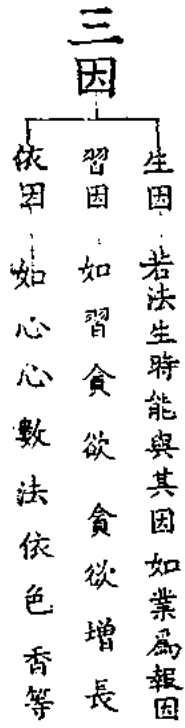 三因
生因 若法生時能與其因如業為報因
習因 如習貪欲貪欲增長
依因 如心心數法依色香等